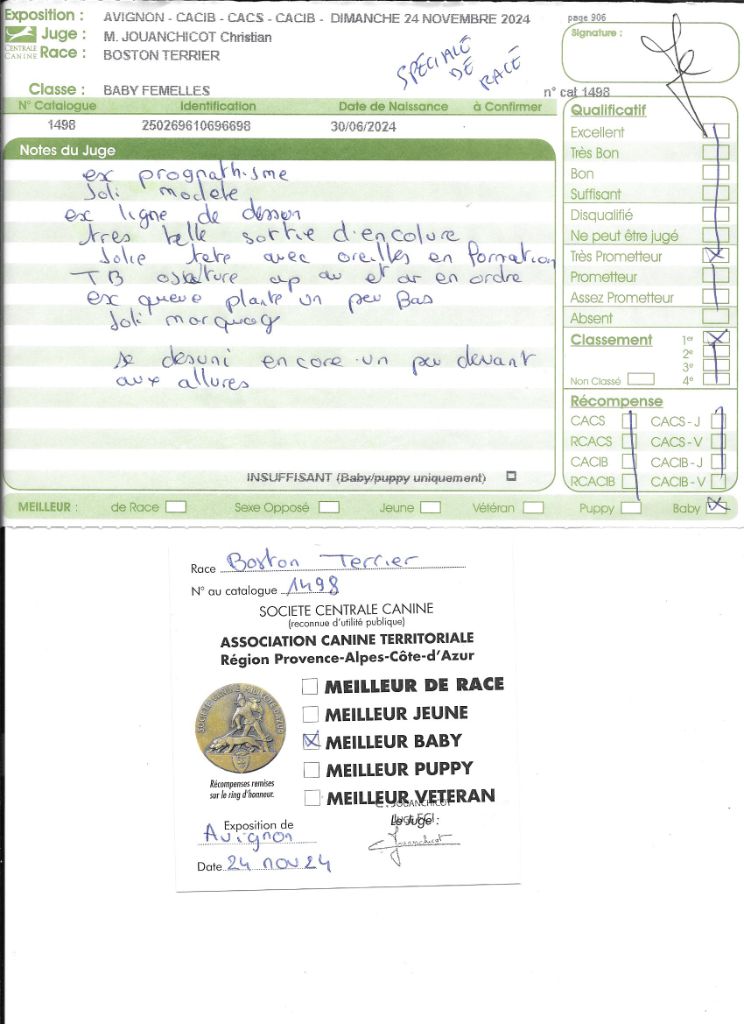 Exposition : AVIGNON - CACIB - CACS - CACIB - DIMANCHE 24 NOVEMBRE 2024
page 906
Juge : M. JOUANCHICOT Christian
CENTRALE CANINE
Race : BOSTON TERRIER
SPECIALE DE RACE
Signature :
Classe : BABY FEMELLES
n° cat 1498
N° Catalogue Identification Date de Naissance à Confirmer
1498 250269610696698 30/06/2024
Notes du Juge
ex prognathisme
Joli modele
ex ligne de dessus
tres belle sortie d'encolure
Jolie tete avec oreilles en formation
TB ossature ap av et ar en ordre
ex queue plante un peu Bas
Joli marquag
se desuni encore un peu devant
aux allures
INSUFFISANT (Baby/puppy uniquement)
Qualificatif
Excellent
Très Bon
Bon
Suffisant
Disqualifié
Ne peut être jugé
Très Prometteur
Prometteur
Assez Prometteur
Absent
Classement 1er
2e
3e
Non Classé 4e
Récompense
CACS CACS - J
RCACS CACS - V
CACIB CACIB - J
RCACIB CACIB - V
MEILLEUR : de Race Sexe Opposé Jeune Vétéran Puppy Baby
Race Boston Terrier
N° au catalogue 1498
SOCIETE CENTRALE CANINE
(reconnue d'utilité publique)
ASSOCIATION CANINE TERRITORIALE
Région Provence-Alpes-Côte-d'Azur
MEILLEUR DE RACE
MEILLEUR JEUNE
MEILLEUR BABY
MEILLEUR PUPPY
MEILLEUR VETERAN
Récompenses remises
sur le ring d'honneur.
C. JOUANCHICOT
Juge FCI
Le Juge :
Jouanchicot
Exposition de
Avignon
Date 24 nov 24